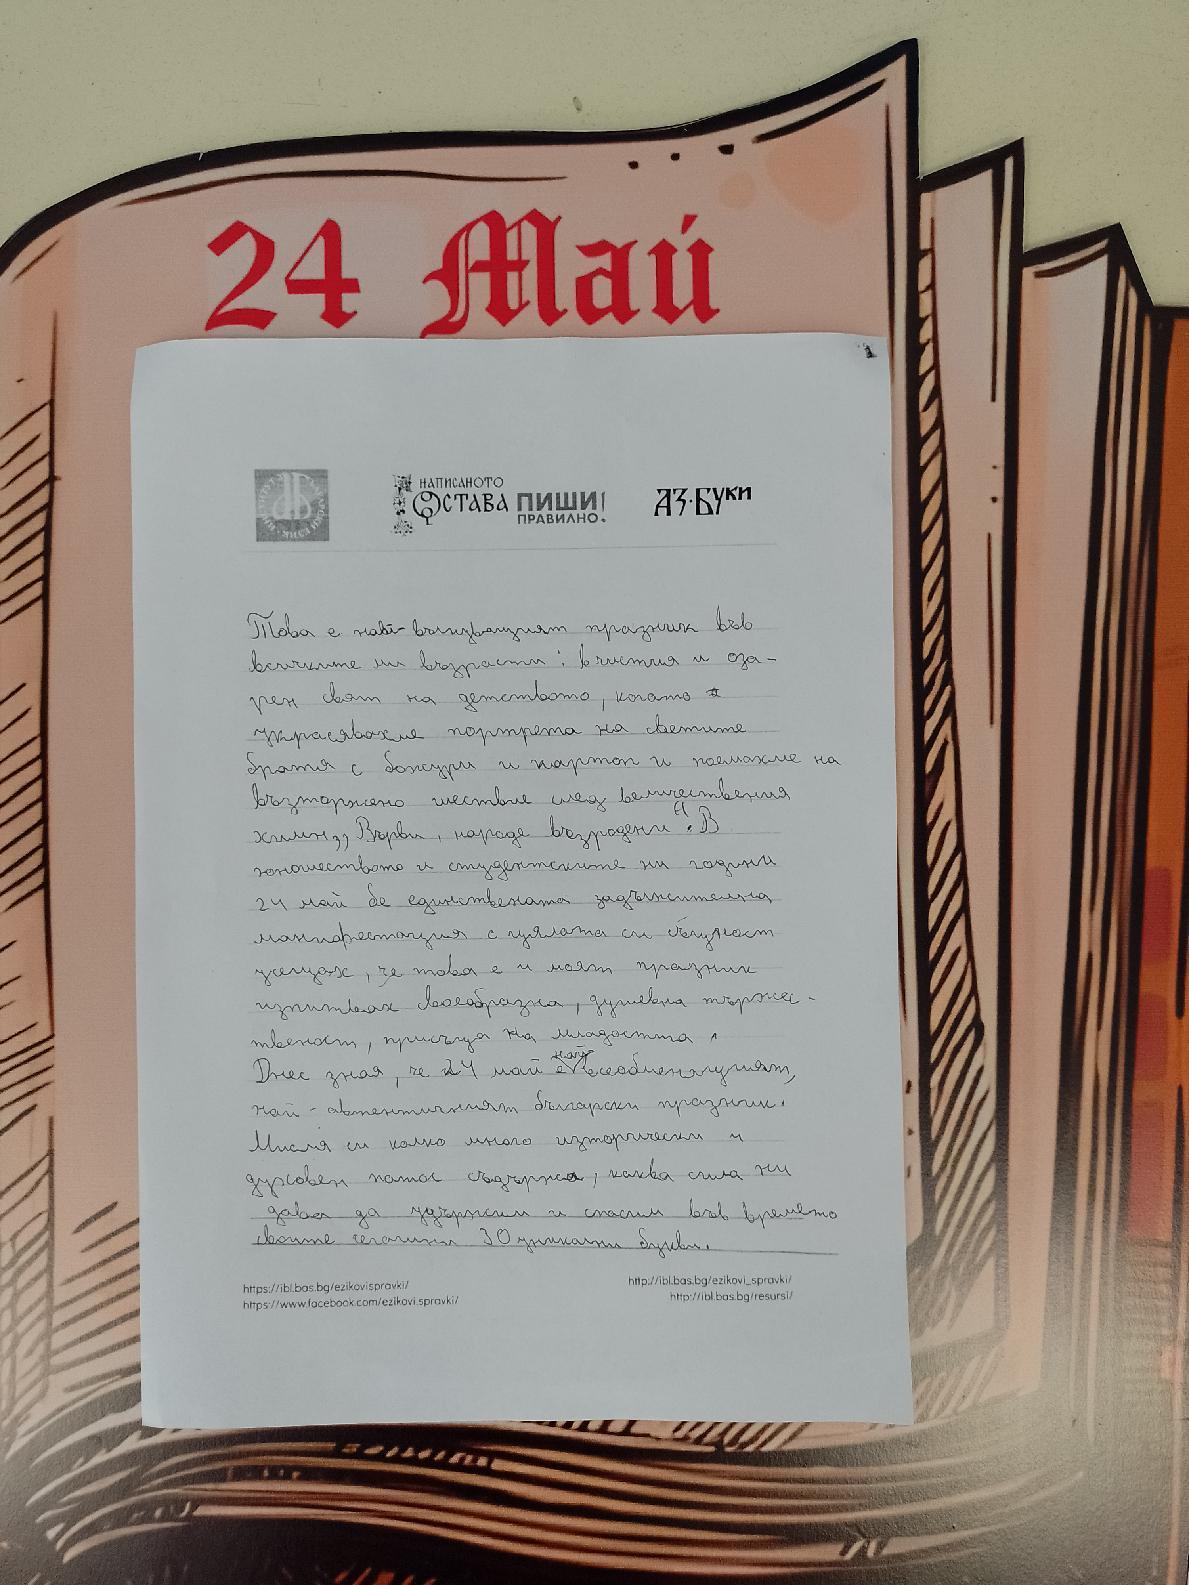 24 Май
1
НАПИСАНОТО
ОСТАВА ПИШИ!
ПРАВИЛНО.
АЗ·БУКИ
Това е най-вълнуващият празник във
всичките ни възрасти: в чистия и оза-
рен свят на детството, когато
украсявахме портрета на светите
братя с божури и картон и поемахме на
възторжено шествие след величествения
химн „Върви, народе възродени“. В
юношеството и студентските ни години
24 май бе единствената задължителна
манифестация с цялата си същност
усещах, че това е и моят празник
изпитвах своеобразна, душевна тържес-
твеност, присъща на младостта.
Днес зная, че 24 май е най
всеобединяващият,
най-автентичният български празник.
Мисля си колко много исторически и
духовен патос съдържа, каква сила ни
дава да удържим и спасим във времето
своите 30 уникални букви.
https://ibl.bas.bg/ezikovispravki/
https://www.facebook.com/ezikovi.spravki/
http://ibl.bas.bg/ezikovi_spravki/
http://ibl.bas.bg/resursi/